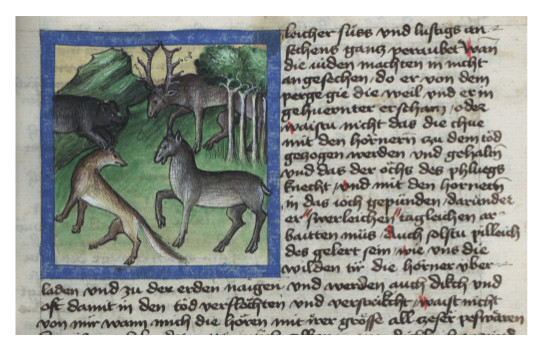 leicher süss vnd lustigs an
sechens gantz peraubet wan
die iuden machten in nicht
angesechen / do er von dem
perge gie die weil vnd er in
gehuernter erschain / oder
waistu nicht das die chue
mit den hörnern zu dem tod
gezogen werden vnd gehaln
vnd das der ochs des phluegs
knecht / vnd mit den hornern
in das ioch gepünden / darunder
er swerleichen tagleichen ar
baitten müs / Auch soltu pilleich
des gelert sein / wie vns die
wilden tir die hörner vber
laden vnd zu der erden naigen vnd werden auch dikch vnd
oft damit in den tod verflochten vnd verstrikcht / waist nicht
von mir wann mich die horen mit irer grösse all